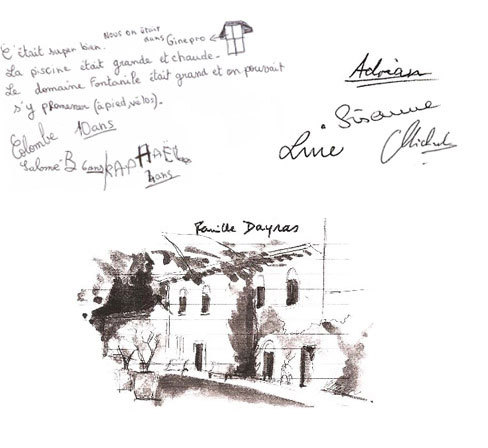 Nous on était
dans Ginepro
C'était super bien.
La piscine était grande et chaude.
Le domaine Fontanile était grand et on pouvait
s'y promener (à pied, vélos).
Colombe 10ans
Salomé B 6ans RAPHAËL
4ans
Adrian
Susanne
Line Michel
Famille Dayras